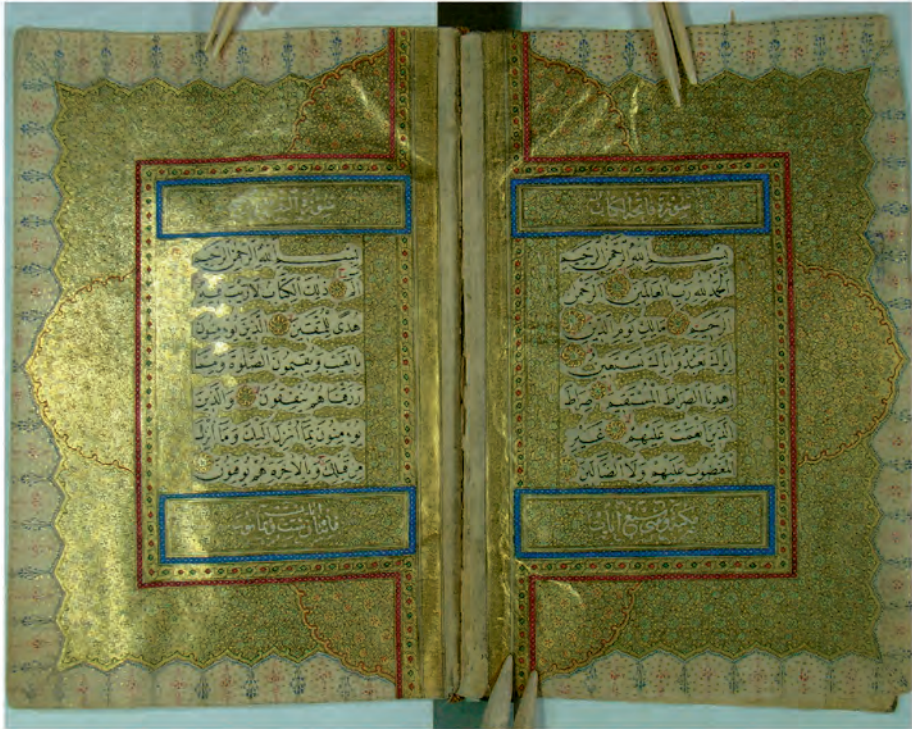 سورة فاتحة الكتاب
بسم الله الرحمن الرحيم
الحمد لله رب العالمين الرحمن
الرحيم مالك يوم الدين
إياك نعبد وإياك نستعين
اهدنا الصراط المستقيم صراط
الذين أنعمت عليهم غير
المغضوب عليهم ولا الضالين
مكية وهي سبع آيات
سورة البقرة
بسم الله الرحمن الرحيم
الم ذلك الكتاب لا ريب فيه
هدى للمتقين الذين يؤمنون
بالغيب ويقيمون الصلوة ومما
رزقناهم ينفقون والذين
يؤمنون بما أنزل إليك وما أنزل
من قبلك وبالآخرة هم يوقنون
مائتان وست وثمانون